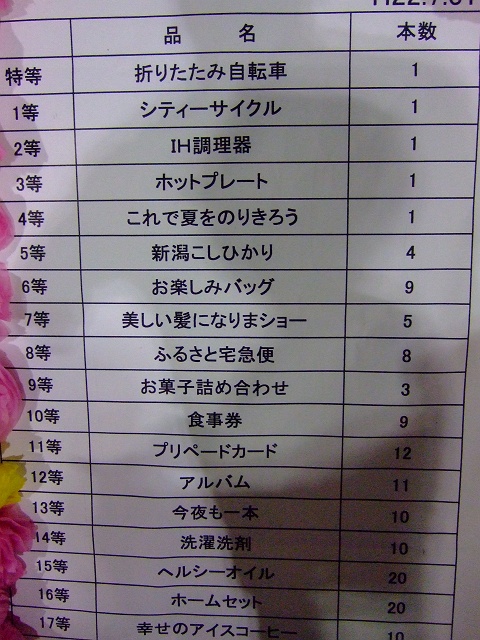 H22.7.31
品名 本数
特等 折りたたみ自転車 1
1等 シティーサイクル 1
2等 IH調理器 1
3等 ホットプレート 1
4等 これで夏をのりきろう 1
5等 新潟こしひかり 4
6等 お楽しみバッグ 9
7等 美しい髪になりまショー 5
8等 ふるさと宅急便 8
9等 お菓子詰め合わせ 3
10等 食事券 9
11等 プリペードカード 12
12等 アルバム 11
13等 今夜も一本 10
14等 洗濯洗剤 10
15等 ヘルシーオイル 20
16等 ホームセット 20
17等 幸せのアイスコーヒー 10